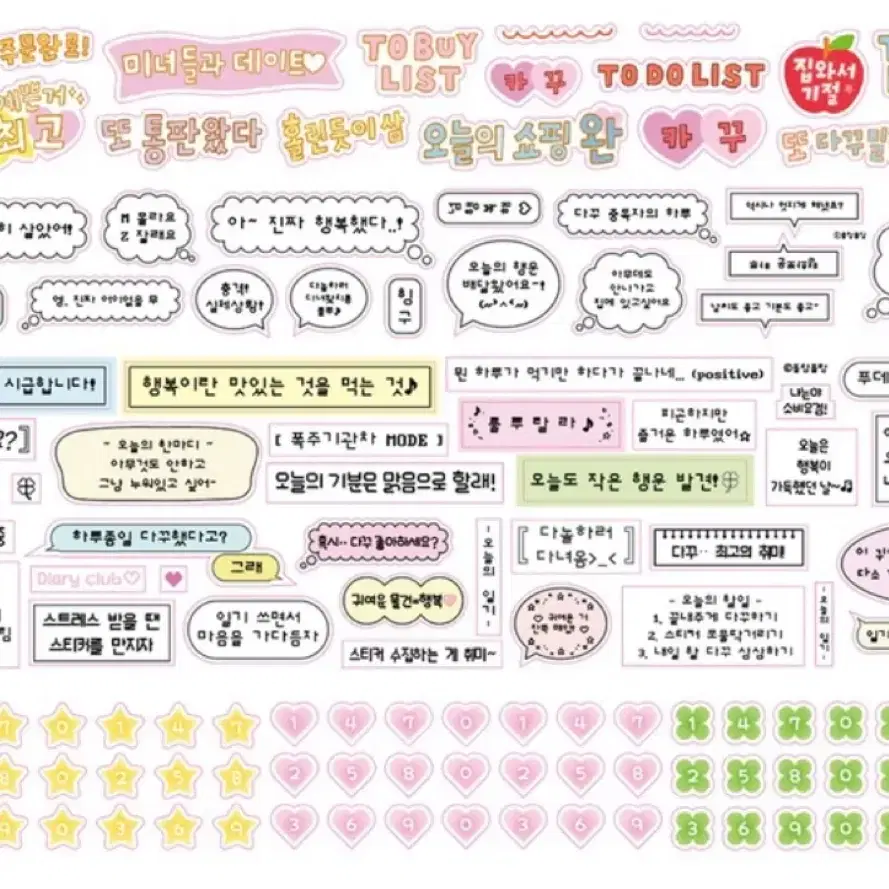 주문완료!
미녀들과 데이트♡
TO BUY
LIST
카 꾸
TO DO LIST
집와서
기절
예쁜거
최고
또 통판왔다
홀린듯이 쌈
오늘의 쇼핑 완
카 꾸
또 다꾸
살았어!
M 몰라요
Z 잘래요
아~ 진짜 행복했다..!
다꾸 중독자의 하루
역시나 멋지게 해냈죠?
엥, 진짜 어이없을 무
충격!
실제상황!
힝
구
오늘의 행운
배달왔어요~!
(~^ㅅ^~)
아무데도
안나가고
집에 있고싶어요
날씨도 좋고 기분도 좋고~
시급합니다!
행복이란 맛있는 것을 먹는 것♪
뭔 하루가 먹기만 하다가 끝나네... (positive)
©퐁실퐁당
나는야
소비요정!
푸데
??]
- 오늘의 한마디 -
아무것도 안하고
그냥 누워있고 싶어~
[ 폭주기관차 MODE ]
룰루랄라♪
피곤하지만
즐거운 하루였어☆
오늘은
행복이
가득했던 날~♫
오늘의 기분은 맑음으로 할래!
오늘도 작은 행운 발견!
하루종일 다꾸했다고?
그래
혹시.. 다꾸 좋아하세요?
- 오늘의 일기 -
[ 다놀하러
다녀옴>_< ]
다꾸.. 최고의 취미!
이 귀
다소
Diary club♡
스트레스 받을 땐
스티커를 만지자
일기 쓰면서
마음을 가다듬자
귀여운 물건=행복
스티커 수집하는 게 취미~
♡ 귀여운 거
잔뜩 해야해 ♡
- 오늘의 할일 -
1. 끝내주게 다꾸하기
2. 스티커 쪼물딱거리기
3. 내일 할 다꾸 상상하기
- 오늘의 일기 -
일기
7 0 1 4 7 1 4 7 0 1 4 7 1 4 7 0
8 0 2 5 8 2 5 8 0 2 5 8 2 5 8 0
9 0 3 6 9 3 6 9 0 3 6 9 3 6 9 0